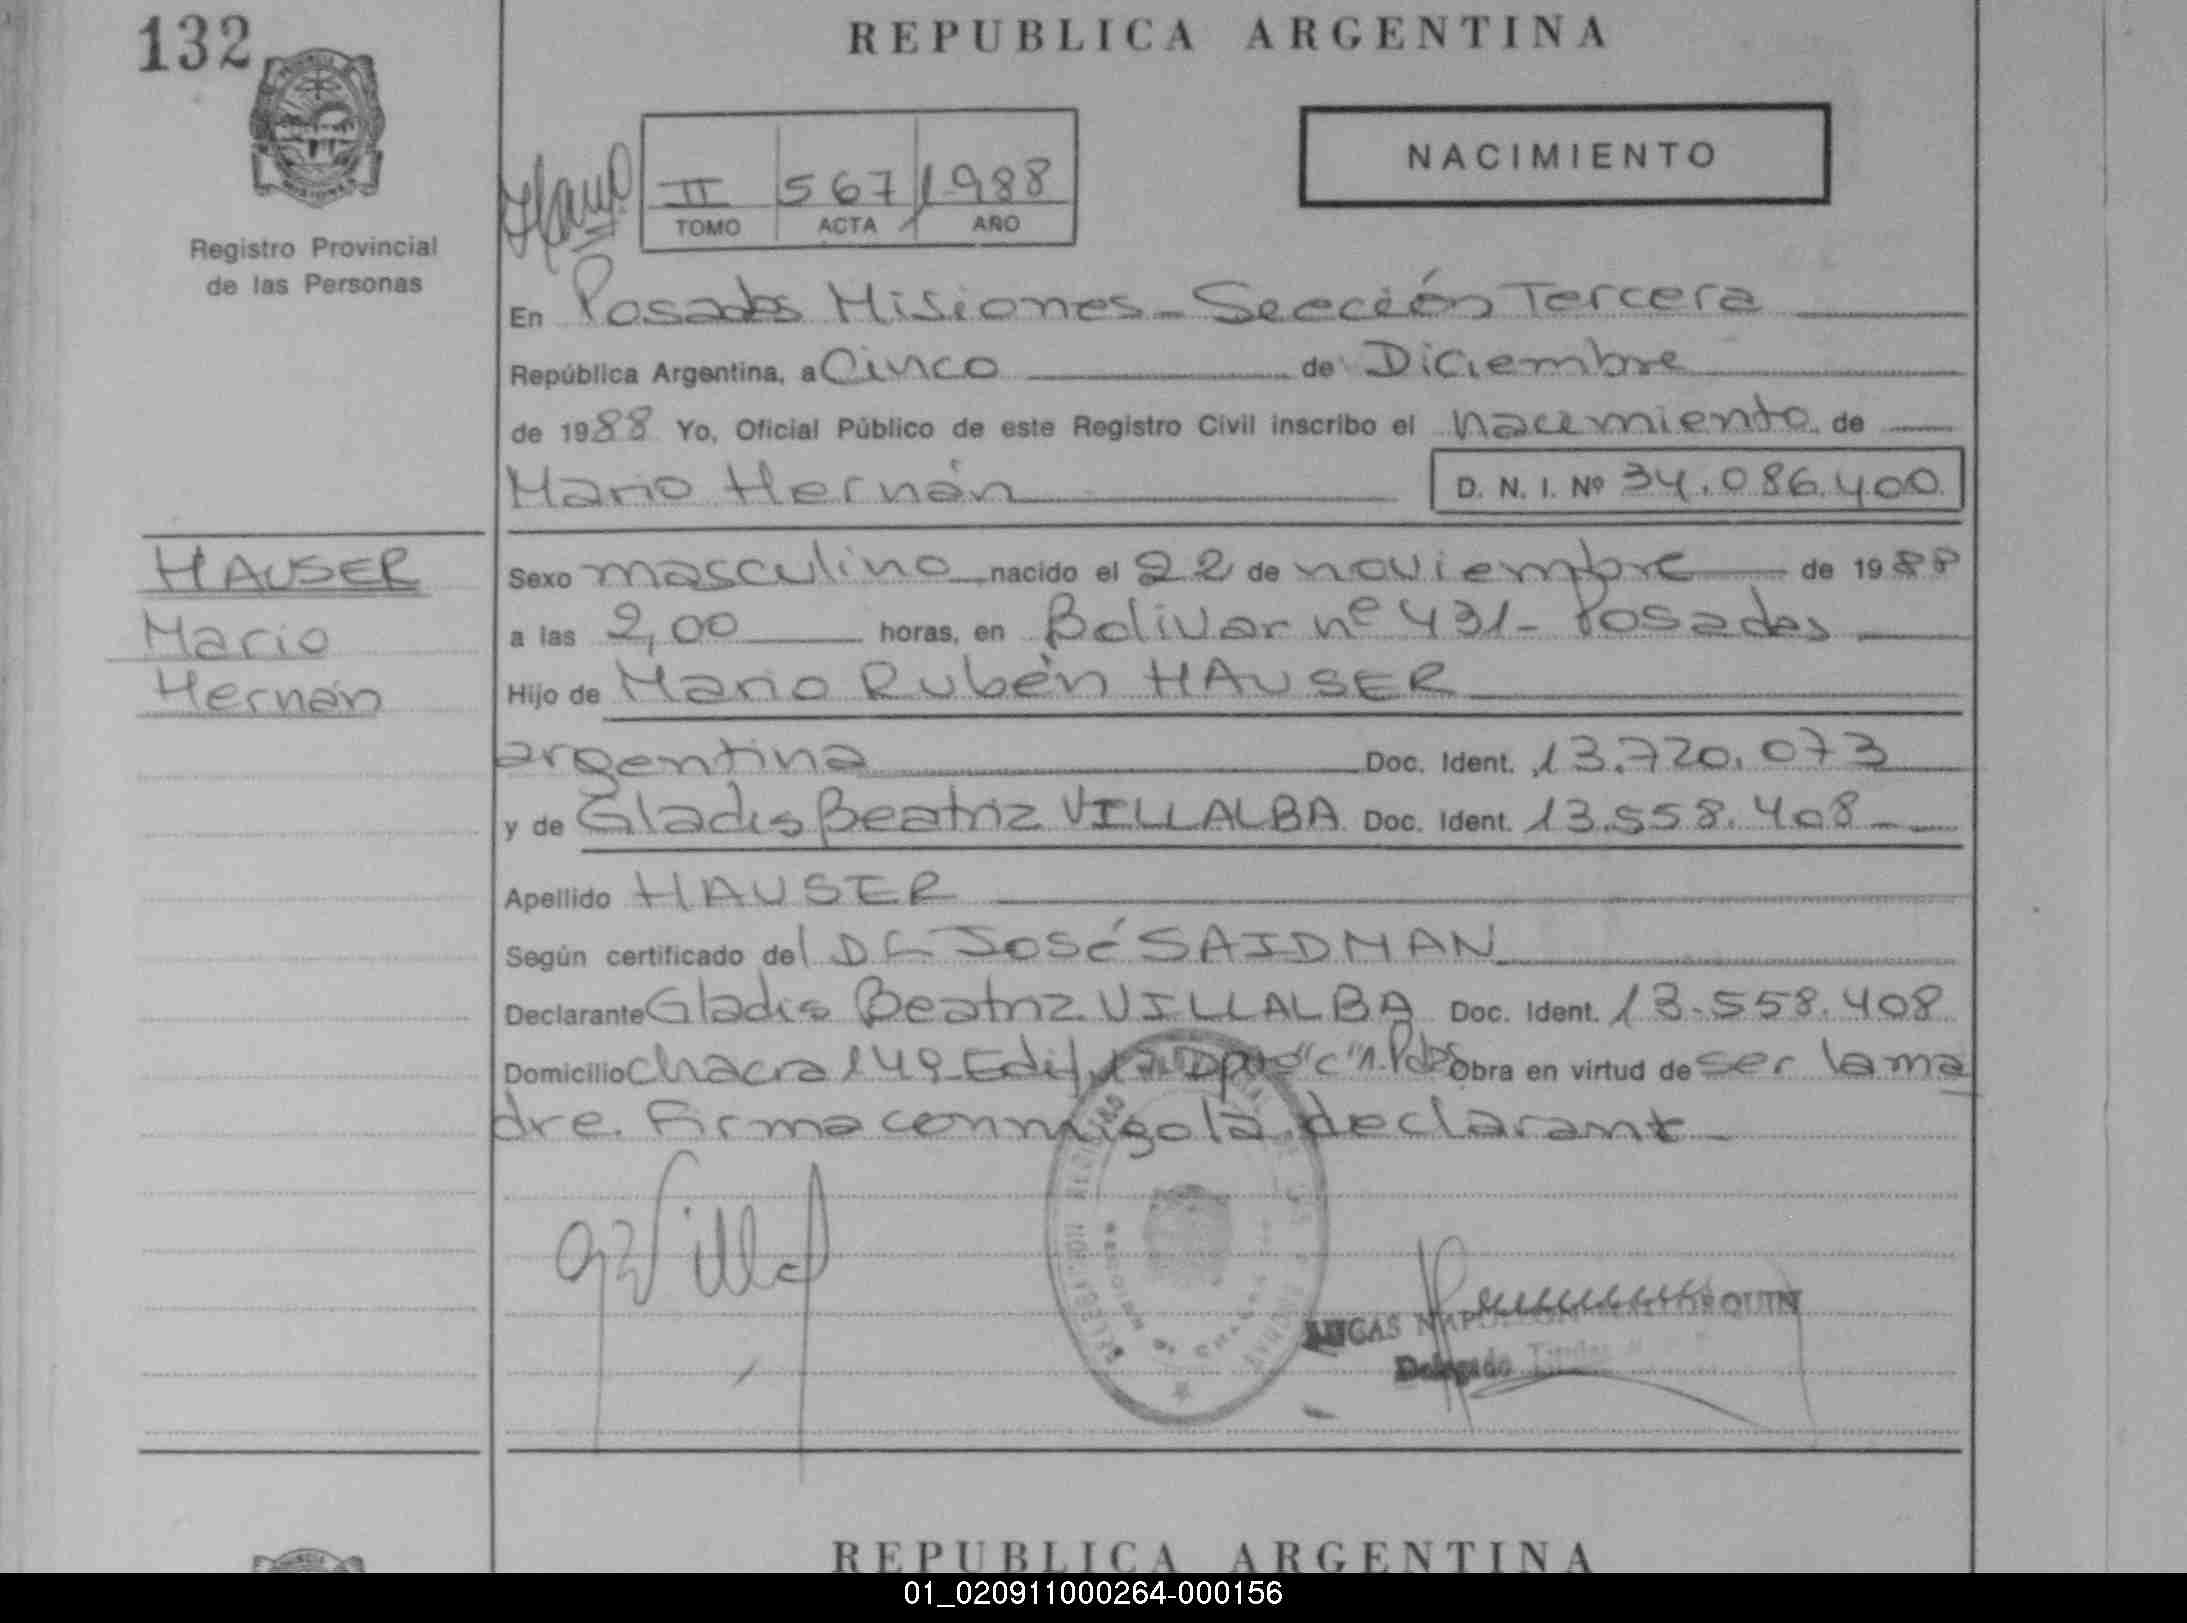 132
REPUBLICA ARGENTINA
NACIMIENTO
II 567 1988
TOMO ACTA AÑO
Registro Provincial
de las Personas
En Posadas Misiones - Sección Tercera
República Argentina, a Cinco de Diciembre
de 1988 Yo, Oficial Público de este Registro Civil inscribo el nacimiento de
Mario Hernán D. N. I. Nº 34.086.400
HAUSER
Mario
Hernán
Sexo masculino nacido el 22 de noviembre de 1988
a las 2,00 horas, en Bolivar nº 431 - Posadas
Hijo de Mario Rubén HAUSER
argentina Doc. Ident. 13.720.073
y de Gladis Beatriz VILLALBA Doc. Ident. 13.558.408
Apellido HAUSER
Según certificado del Dr José SAIDMAN
Declarante Gladis Beatriz VILLALBA Doc. Ident. 13.558.408
Domicilio Chacra 149 Edif. Dpto "C" Pdas Obra en virtud de ser la ma
dre. Firma conmigo la declarante
LUCAS NAPOLEON
Delegado Titular
REPUBLICA ARGENTINA
01_020911000264-000156